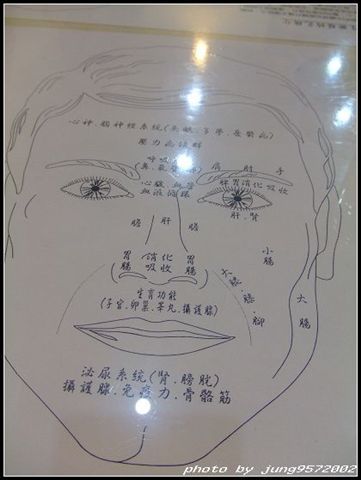 心神、腦神經系統(失眠、多夢、憂鬱症)
壓力
呼吸
肩 肘 手
心臟、血管
血液循環
脾胃消化吸收
肝、腎
膽 肝 膽
胃腸 消化吸收 胃腸
小腸
大腸
大腿、膝、腳
生育功能
(子宮、卵巢、睪丸、攝護腺)
泌尿系統(腎、膀胱)
攝護腺、免疫力、骨骼筋
photo by jung9572002